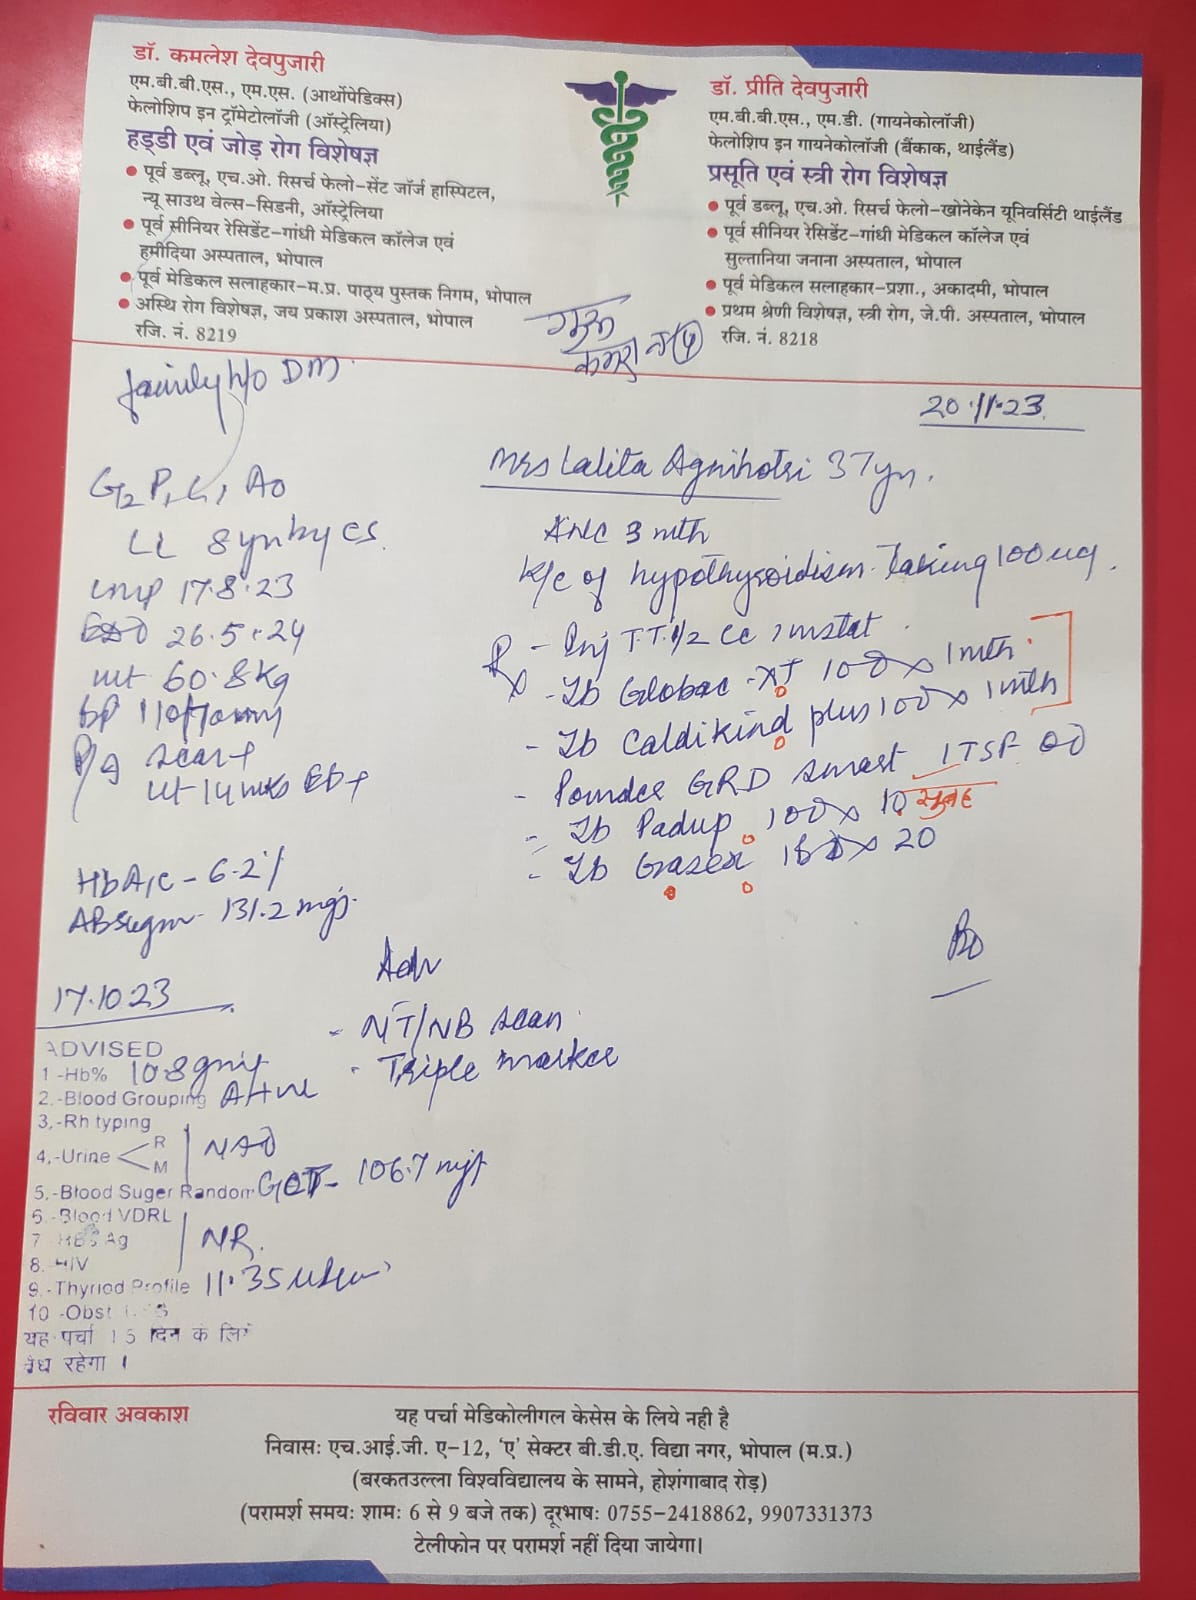 डॉ. कमलेश देवपुजारी
एम.बी.बी.एस., एम.एस. (आर्थोपेडिक्स)
फेलोशिप इन ट्रॉमेटोलॉजी (ऑस्ट्रेलिया)
हड्डी एवं जोड़ रोग विशेषज्ञ
• पूर्व डब्लू, एच.ओ. रिसर्च फेलो-सेंट जॉर्ज हास्पिटल,
न्यू साउथ वेल्स-सिडनी, ऑस्ट्रेलिया
• पूर्व सीनियर रेसिडेंट-गांधी मेडिकल कॉलेज एवं
हमीदिया अस्पताल, भोपाल
• पूर्व मेडिकल सलाहकार-म.प्र. पाठ्य पुस्तक निगम, भोपाल
• अस्थि रोग विशेषज्ञ, जय प्रकाश अस्पताल, भोपाल
रजि. नं. 8219
डॉ. प्रीति देवपुजारी
एम.बी.बी.एस., एम.डी. (गायनेकोलॉजी)
फेलोशिप इन गायनेकोलॉजी (बैंकाक, थाईलैंड)
प्रसूति एवं स्त्री रोग विशेषज्ञ
• पूर्व डब्लू, एच.ओ. रिसर्च फेलो-खोनेकेन यूनिवर्सिटी थाईलैंड
• पूर्व सीनियर रेसिडेंट-गांधी मेडिकल कॉलेज एवं
सुल्तानिया जनाना अस्पताल, भोपाल
• पूर्व मेडिकल सलाहकार-प्रशा., अकादमी, भोपाल
• प्रथम श्रेणी विशेषज्ञ, स्त्री रोग, जे.पी. अस्पताल, भोपाल
रजि. नं. 8218
कमरा नं
family h/o DM
20.11.23
Mrs Lalita Agnihotri 37yr.
ANC 3 mth
K/c of hypothyroidism. Taking 100 ug.
Rx - Inj T.T. 1/2 cc 1m stat
- Tb Globac-XT 1OD x 1mth
- Tb Caldikind plus 1OD x 1mth
- Powder GRD smart 1TSF OD
- Tb Padup 1OD x 10 सुबह
- Tb Grasex 1BD x 20
G2 P1 L1 A0
LL 8yr by CS
LMP 17.8.23
EDD 26.5.24
wt 60.8kg
BP 110/70 mmHg
P/A scar+
ut 14 wks
HbA1c - 6.2%
ABsugar - 131.2 mg%
Adv
- NT/NB scan
- Triple marker
17.10.23
ADVISED
1 -Hb% 10.8 gm%
2.-Blood Grouping A+ve
3.-Rh typing
4.-Urine R M NAD
5.-Blood Suger Random GCT- 106.7 mg%
6.-Blood VDRL
7 HBS Ag NR
8. HIV
9.-Thyriod Profile 11.35
10 -Obst
यह पर्चा 15 दिन के लिए
वैध रहेगा ।
रविवार अवकाश
यह पर्चा मेडिकोलीगल केसेस के लिये नही है
निवासः एच.आई.जी. ए-12, 'ए' सेक्टर बी.डी.ए. विद्या नगर, भोपाल (म.प्र.)
(बरकतउल्ला विश्वविद्यालय के सामने, होशंगाबाद रोड़)
(परामर्श समयः शामः 6 से 9 बजे तक) दूरभाषः 0755-2418862, 9907331373
टेलीफोन पर परामर्श नहीं दिया जायेगा।